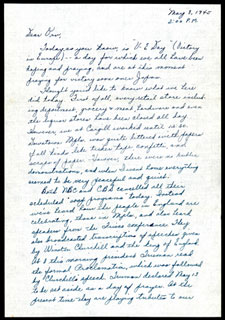 May 8, 1945
2:00 P.M.
Dear Dew,
Today as you know, is "V-E Day" (Victory
in Europe) - a day for which we all have been
hoping and praying, and are at this moment
praying for victory soon over Japan.
Thought you'd like to know what we here
did today. First of all, every retail store included
in department, grocery & meat, hardware and even
the liquor stores have been closed all day.
However we at Cargill worked until 12:00.
Downtown Mpls. was quite littered with papers
of all kinds like ticker tape, confetti, and
scraps of paper. However, there were no further
demonstrations, and when I went home everything
seemed to be very peaceful and quiet.
Both NBC and CBS cancelled all their
scheduled programs today. Instead
we've heard how the people in England are
celebrating, those in Mpls, and also heard
speakers from the Frisco conference. They
also broadcasted transcriptions of speeches given
by Winston Churchill and the King of England.
At 8 this morning president Truman read
the formal Proclamation, which was followed
by Churchill's speech. Truman declared May 13
to be set aside as a day of prayer. At the
present time they are playing tributes to our